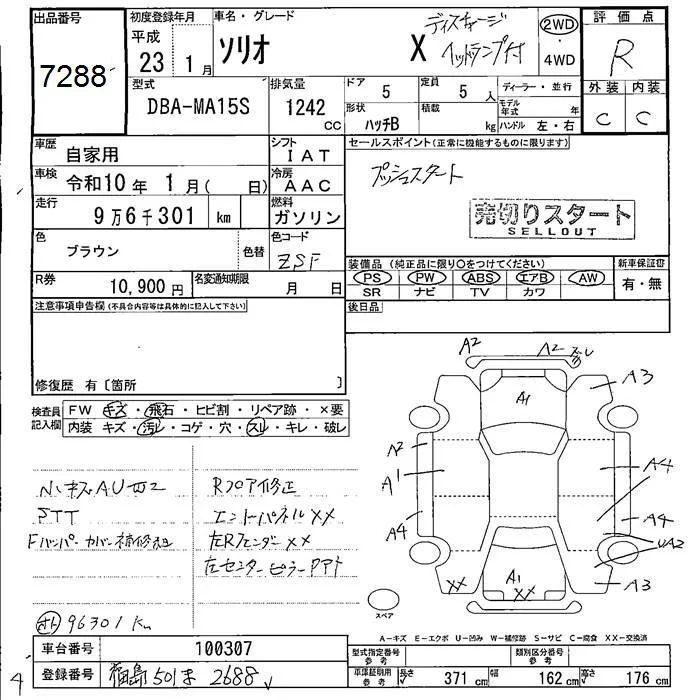 出品番号
7288
初度登録年月
平成
23 1月
車名・グレード
ソリオ X ディスチャージ
ヘッドランプ付
2WD
4WD
評価点
R
外装 内装
C C
型式
DBA-MA15S
排気量
1242
CC
ドア 5
形状 ハッチB
定員 5 人
積載 kg
ディーラー・並行
モデル年式 年
ハンドル 左・右
車歴 自家用
車検 令和10年 1月( 日)
走行 9万6千301 km
色 ブラウン 色替
シフト IAT
冷房 AAC
燃料 ガソリン
色コード ZSF
R券 10,900円
名変通知期限 月 日
セールスポイント(正常に機能するものに限ります)
プッシュスタート
売切りスタート
SELLOUT
装備品(純正品に限り○をつけてください)
PS PW ABS エアB AW
SR ナビ TV カワ
新車保証書
有・無
後日品
注意事項申告欄(不具合内容等は具体的に記入して下さい)
修復歴 有〔箇所 〕
検査員
記入欄
FW キズ・飛石・ヒビ割・リペア跡・×要
内装 キズ・汚レ・コゲ・穴・スレ・キレ・破レ
小キズAU
STT
Fバンパ・カバー補修
Rフロア修正
エンドーパネルXX
左RフェンダーXX
左センターピラー
96301 km
A2
A2
A3
A1
A2
A1
A4
A4
A4
UA2
A3
A1
XX
XX
スペア
A-キズ E-エクボ U-凹み W-補修跡 S-サビ C-腐食 XX-交換済
車台番号 100307
登録番号 福島 501 ま 2688
型式指定番号
参考
類別区分番号
参考
車庫証明用
参考
長さ 371 cm 幅 162 cm 高さ 176 cm
4